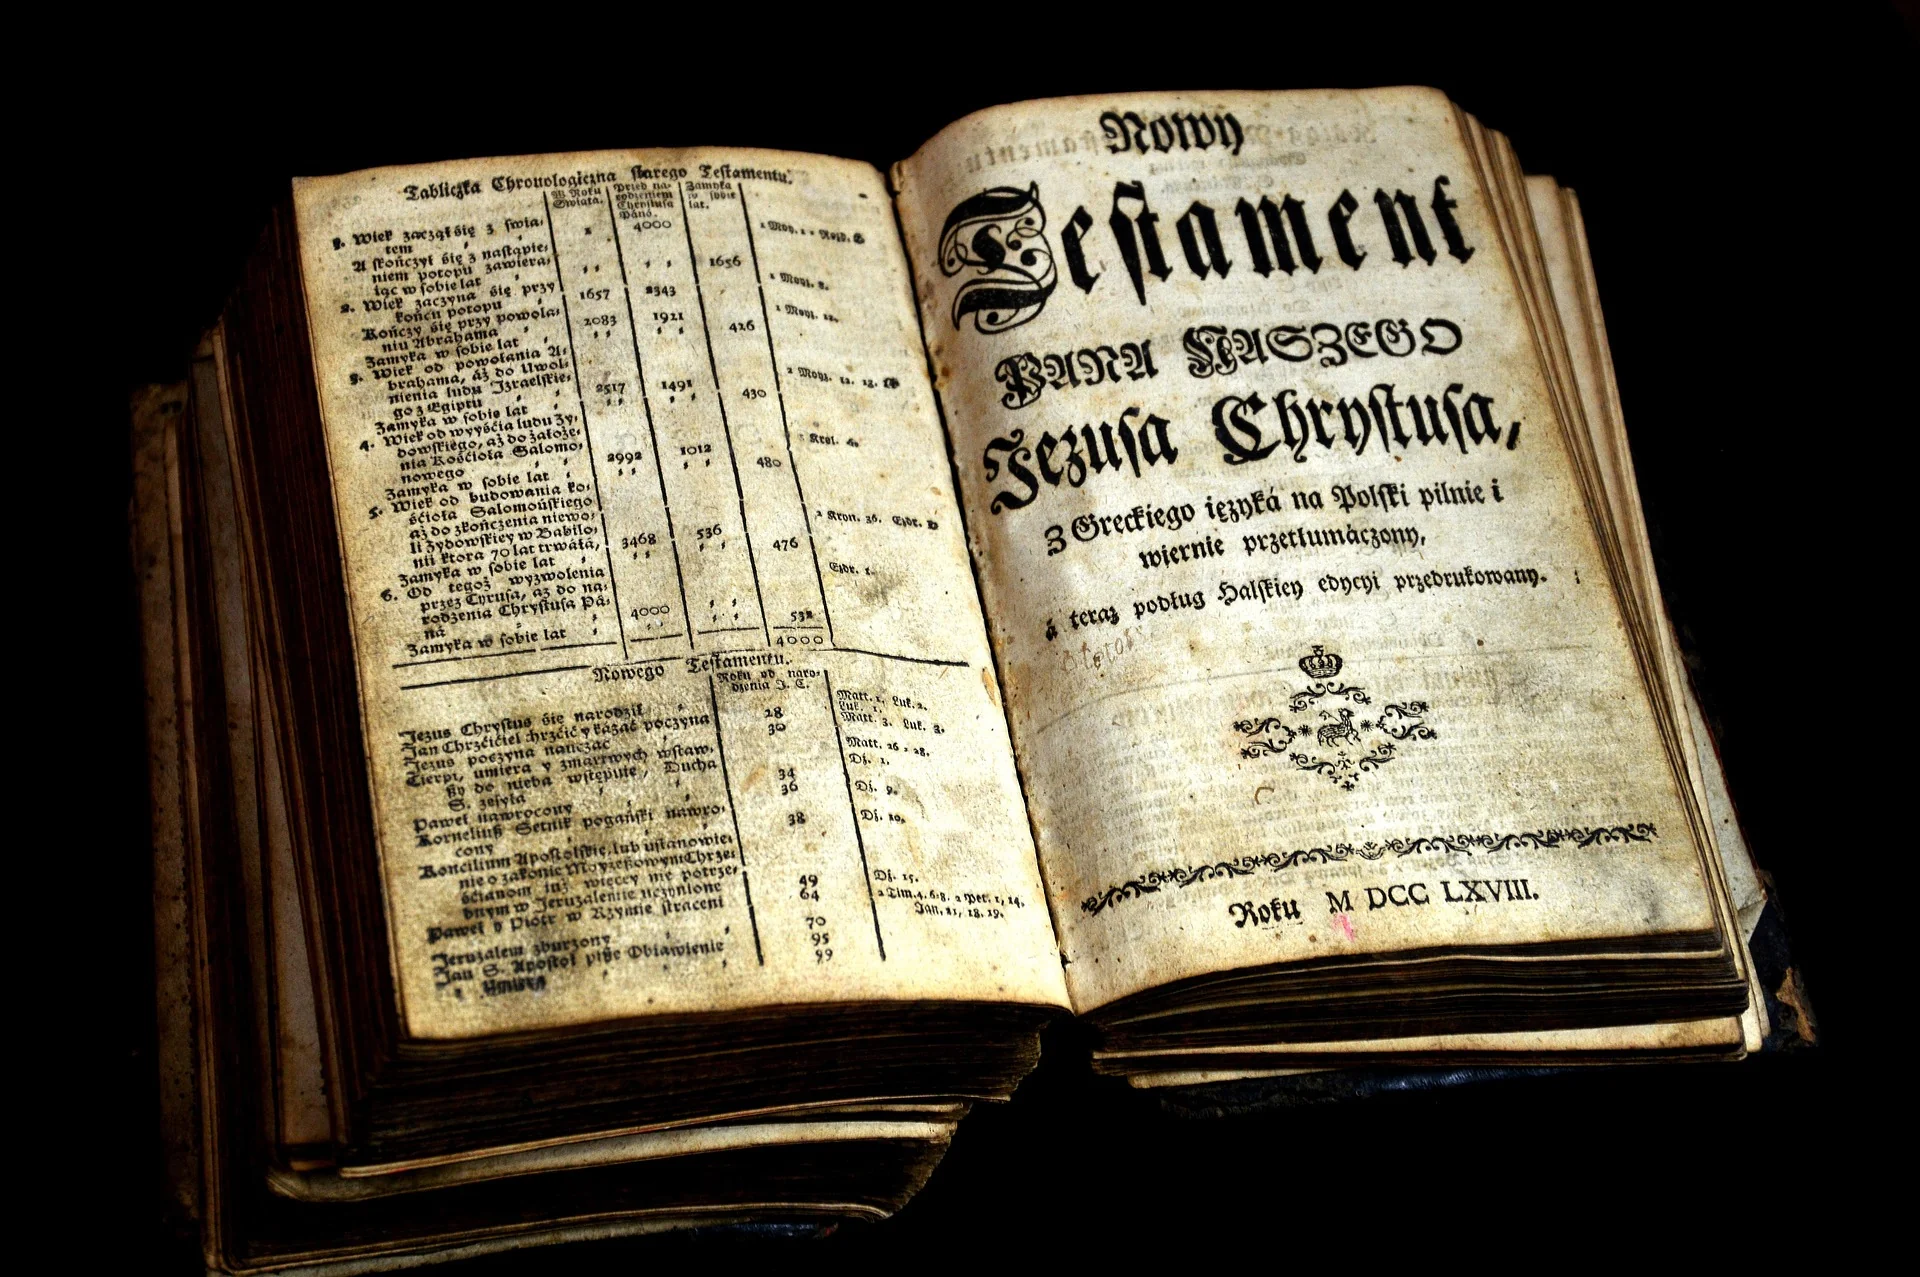 Tabliczka Chronologiczna starego Testamentu.
W Roku Swiata.
Przed narodzeniem Chrystusa Páná.
Zamyka w sobie lat.
1. Wiek zaczął się z świa-
tem 1 4000 1 Moy. 1.
A skończył się z nastąpie-
niem potopu zawiera-
iąc w sobie lat 1656 1 Moyż. 8.
2. Wiek zaczyna się przy
końcu potopu 1657 2343
Kończy się przy powoła-
niu Abrahama 2083 1921 1 Moyż. 12.
Zamyka w sobie lat 426
3. Wiek od powołania A-
brahama, áż do Uwol-
nienia ludu Izraelskie-
go z Egiptu 2517 1491 2 Moyż. 12. 13.
Zamyka w sobie lat 430
4. Wiek od wyyścia ludu Zy-
dowskiego, aż do założe-
nia Kościoła Salomo-
nowego 2992 1012 Krol. 6.
Zamyka w sobie lat 480
5. Wiek od budowania ko-
ścioła Salomońskiego
aż do zkończenia niewo-
li Zydowskiey w Babilo-
nii ktora 70 lat trwáłá, 3468 536 2 Kron. 36. Ezdr.
Zamyka w sobie lat 476
6. Od tegoż wyzwolenia Ezdr. 1.
przez Cyrusa, aż do na-
rodzenia Chrystusa Pá-
ná 4000
Zamyka w sobie lat 532
4000
Nowego Testamentu.
Roku od naro-
dzenia J. C.
Jezus Chrystus się narodził Matt. 1, Luk. 2.
Jan Chrzciciel chrzcić y kázáć poczyna 28 Luk. 1. Matt. 3. Luk. 3.
Jezus poczyna nauczać 30
Cierpi, umiera y zmartwych wstaw- Matt. 26, 28.
szy do nieba wstępuie, Ducha Dz. 1.
S. zesyła 34
Paweł nawrocony 36 Dz. 9.
Korneliusz Setnik pogański nawro-
cony 38 Dz. 10.
Koncilium Apostolskie, lub ustanowie-
nie o zakonie Moyżeszowym Chrze-
ścianom iuż więcey nie potrze-
bnym w Jeruzalemie uczynione 49 Dz. 15.
Paweł y Piotr w Rzymie straceni 64 2 Tim. 4. 6. 8. 2 Pet. 1, 14.
Jan. 21, 18. 19.
Jeruzalem zburzony 70
Jan S. Apostoł pisze Obiawienie 95
Umiera 99
Nowy
Testament
PANA NASZEGO
Jezusa Chrystusa,
Z Greckiego ięzyká na Polski pilnie i
wiernie przetłumáczony,
á teraz podług Halskiey edycyi przedrukowany.
Roku M DCC LXVIII.